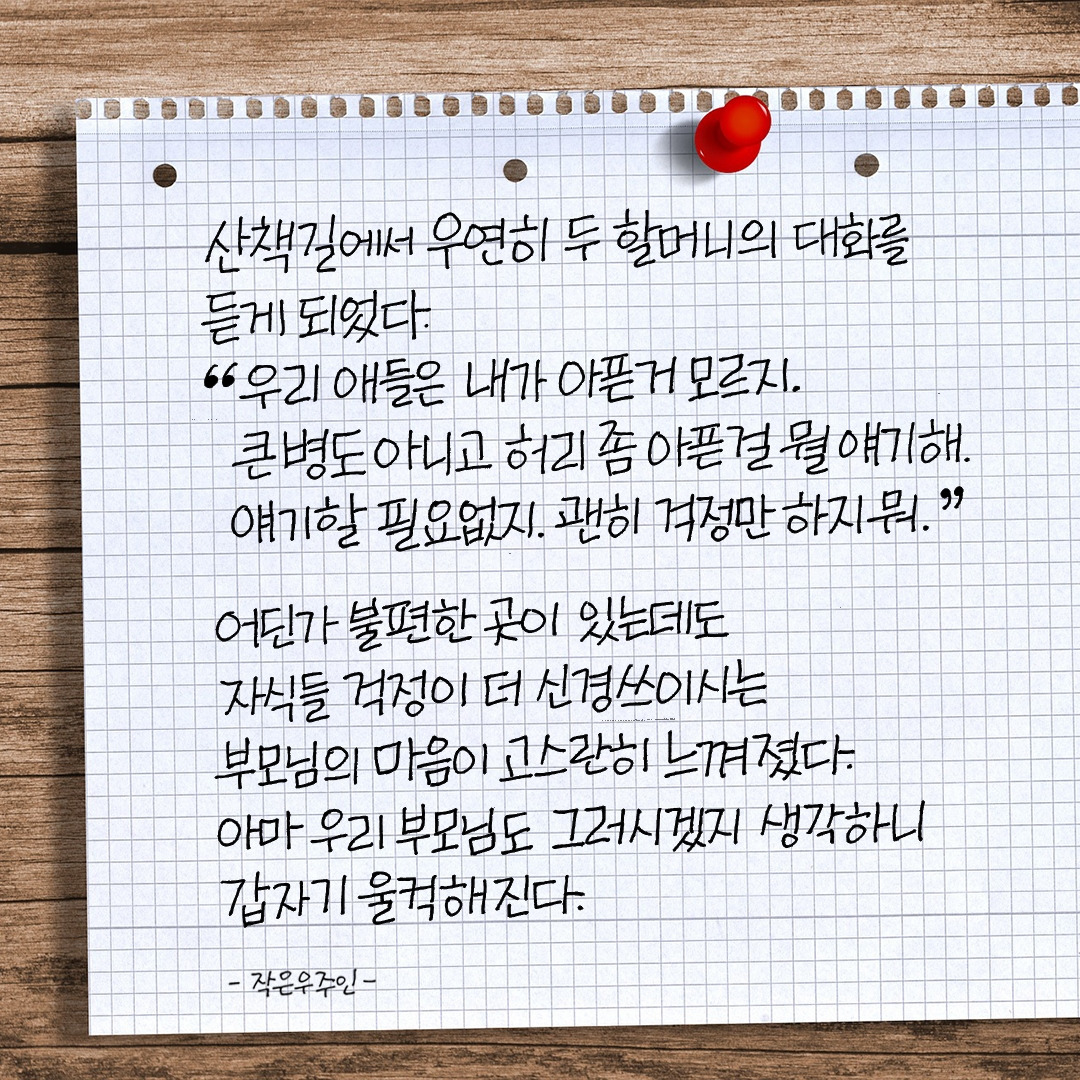 산책길에서 우연히 두 할머니의 대화를
듣게 되었다.
“우리 애들은 내가 아픈거 모르지.
큰병도 아니고 허리 좀 아픈걸 뭘 얘기해.
얘기할 필요없지. 괜히 걱정만 하지 뭐.”
어딘가 불편한 곳이 있는데도
자식들 걱정이 더 신경쓰이시는
부모님의 마음이 고스란히 느껴졌다.
아마 우리 부모님도 그러시겠지 생각하니
갑자기 울컥해진다.
- 작은우주인 -